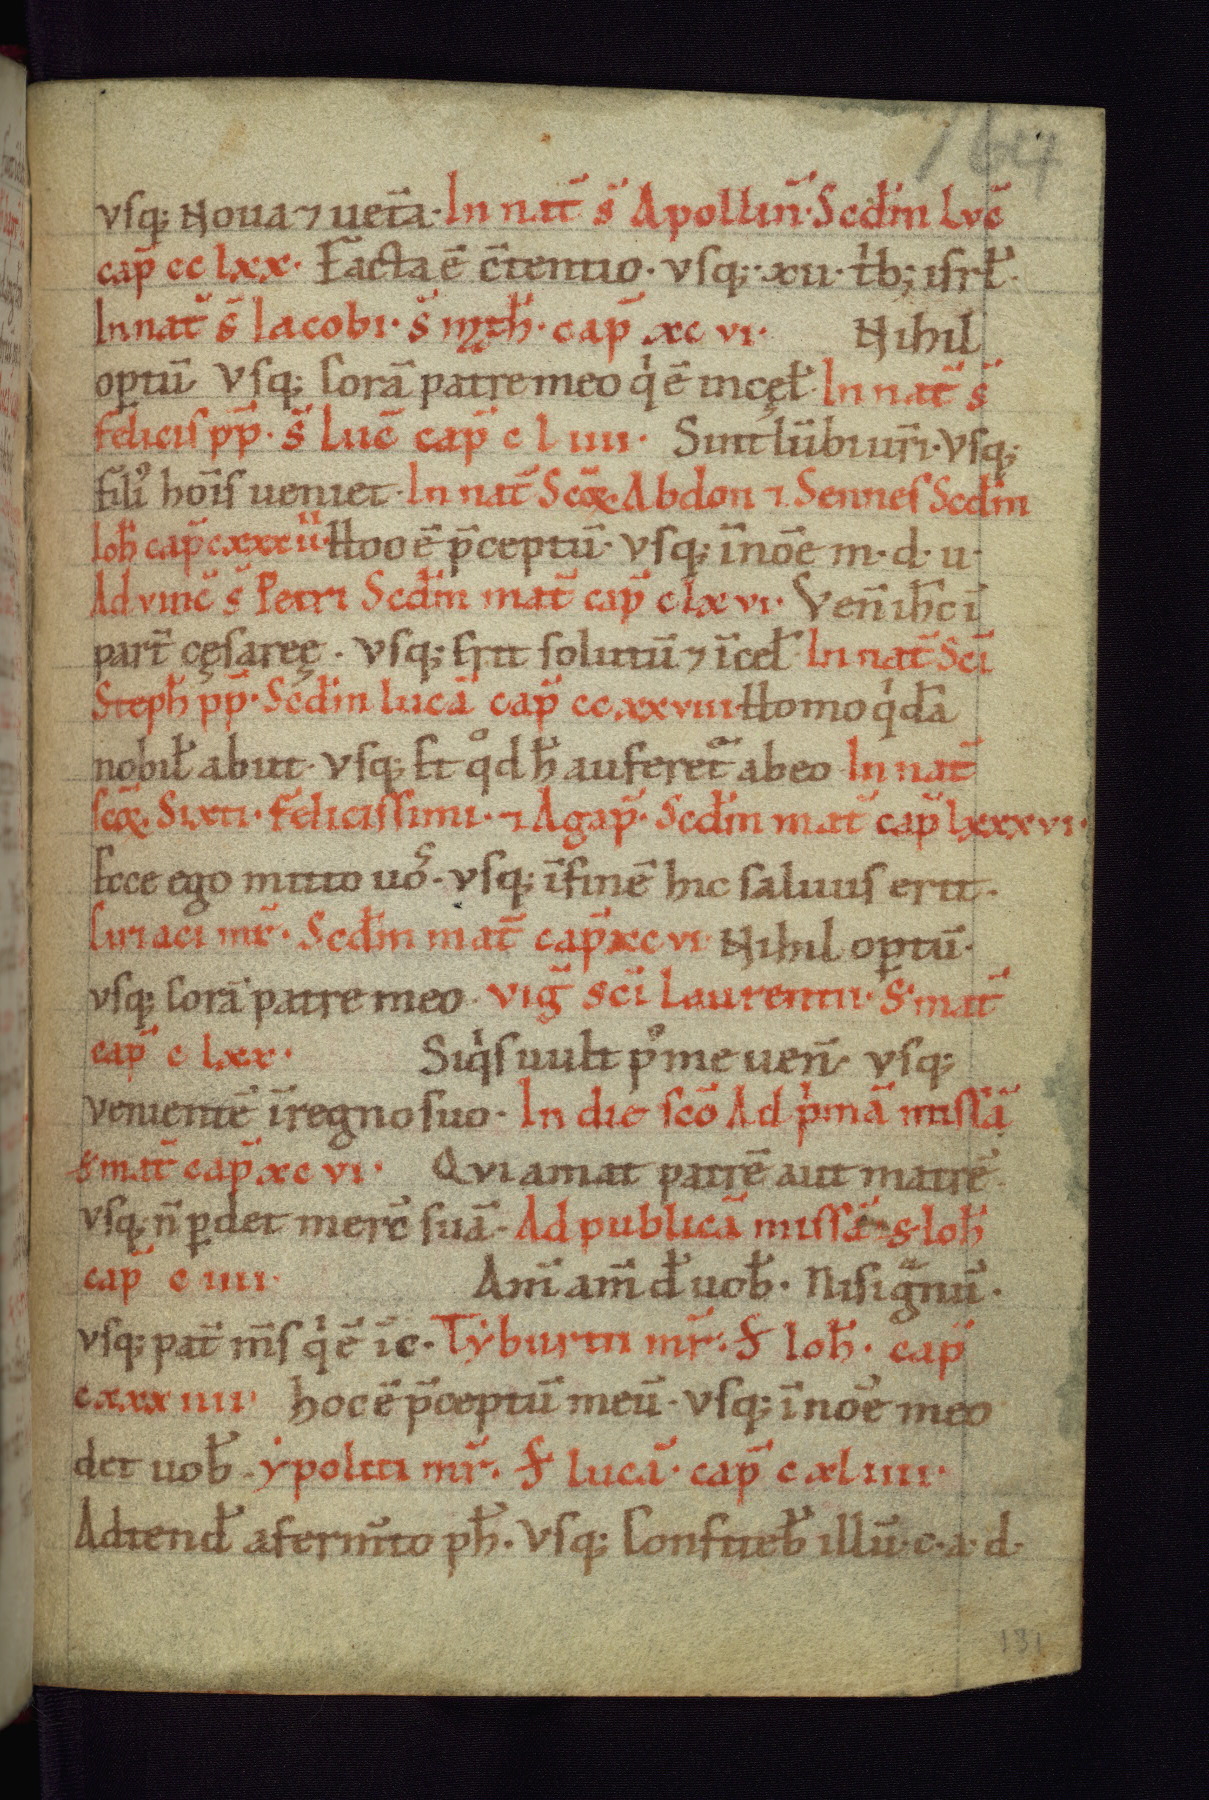 vsq; Noua ⁊ uet̄a· In nat̄ s̄ Apollin̄· Scd̄m Luc̄
cap̄ cc lxx· Facta ē c̄tentio· vsq;· xii· tb; isrl̄·
In nat̄ s̄ Iacobi· s̄ mth̄· cap̄ xc vi· Nihil
optū vsq; Corā patre meo q ē in cęl̄· In nat̄ s̄
felicis pp̄· s̄ Luc̄ cap̄ c l iiii· Sint lūbi ur̄i· vsq;
fili hoīs ueniet· In nat̄ Scoꝝ Abdon ⁊ Sennes Scd̄m
Ioh̄ cap̄ cxxxii· Hoc ē p̄ceptū· vsq; ī noē m· d· u·
Ad vinc̄ s̄ Petri Scd̄m mat̄ cap̄ clxvi· Ven̄ ih̄c ī
part̄ cęsareę· vsq; Erit solutū ⁊ ī cel̄ In nat̄ Sc̄i
Steph̄ pp̄· Scd̄m lucā cap̄ cc xxviii Homo qdā
nobil̄ abiit· vsq; Et qd h̄ auferet abeo In nat̄
scoꝝ Sixti· felicissimi· ⁊ Agap̄· Scd̄m mat̄ cap̄ lxxxvi·
Ecce ego mitto uos· vsq; ī finē hic saluus erit·
Ciriaci mr̄· Scd̄m mat̄ cap̄ xc vi Nihil optū·
vsq; Corā patre meo· viḡ sc̄i Laurentii· S· mat̄
cap̄ c lxx· Siqs uult p me uen̄ vsq;
venientē ī regno suo· In die sc̄o Ad pmā missā
s· mat̄ cap̄ xc vi· Qui amat patrē aut matrē
vsq; n̄ pdet merc̄ suā· Ad publicā missā s· Ioh̄
cap̄ c iiii· Am̄ am̄ d̄ uob̄· Nisi gnū·
vsq; pat̄ m̄s q ē ī c· Tyburtii mr̄· S Ioh̄· cap̄
cxxx iiii· hoc ē p̄ceptū meū· vsq; ī noē meo
det uob̄· ypoliti mr̄· S lucā· cap̄ c xl iiii·
Adtend̄ a ferm̄to ph̄· vsq; Confiteb̄ illū· c· a· d·
131